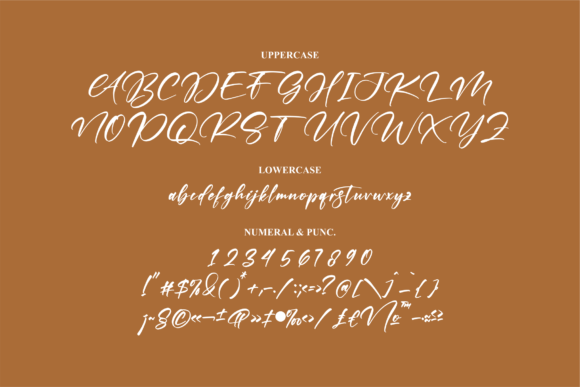 UPPERCASE
ABCDEFGHIJKLM
NOPQRSTUVWXYZ
LOWERCASE
abcdefghijklmnopqrstuvwxyz
NUMERAL & PUNC.
1234567890
!"#$%&()*+,-./:;<=>?@[\]^_{}